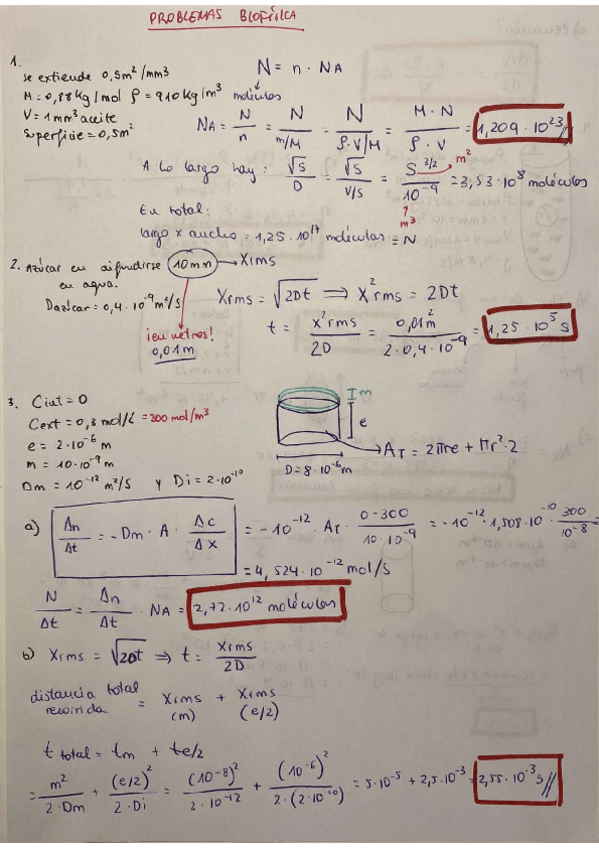 PROBLEMAS BIOFÍSICA
1.
se extiende 0,5m²/mm³
M = 0,88 Kg/mol ρ = 910 kg/m³
V = 1mm³ aceite
Superficie = 0,5m²
N = n · NA
moléculas
NA = N/n = N/(m/M) = N/(ρ·V/M) = M·N/(ρ·V) = 1,209 · 10^23//
A lo largo hay: √S/D = √S/(V/S) = S^(3/2)/10^-9 = 3,53 · 10^8 moléculas
m²
m³
En total:
largo x ancho = 1,25 · 10^17 moléculas = N
2. Azúcar en difundirse 10mm → Xrms
en agua.
Dazúcar = 0,4 · 10^-9 m²/s
¡en metros!
0,01m
Xrms = √2Dt ⟹ X²rms = 2Dt
t = X²rms/2D = 0,01m²/(2 · 0,4 · 10^-9) = 1,25 · 10^5 s
3. Cint = 0
Cext = 0,3 mol/L = 300 mol/m³
e = 2 · 10^-6 m
m = 10 · 10^-9 m
Dm = 10^-12 m²/s y Di = 2 · 10^-10
I m
e
D = 8 · 10^-6 m
AT = 2πre + πr² · 2
a) Δn/Δt = - Dm · A · Δc/Δx = - 10^-12 · AT · (0-300)/(10·10^-9) = - 10^-12 · 1,508 · 10^-10 · 300/10^-8 =
= 4,524 · 10^-12 mol/s
N/Δt = Δn/Δt · NA = 2,72 · 10^12 moléculas
b) Xrms = √2Dt ⟹ t = Xrms/2D
distancia total recorrida = Xrms (m) + Xrms (e/2)
t total = tm + te/2
= m²/(2 · Dm) + (e/2)²/(2 · Di) = (10^-8)²/(2 · 10^-12) + (10^-6)²/(2 · (2 · 10^-10)) = 5 · 10^-5 + 2,5 · 10^-3 = 2,55 · 10^-3 s//